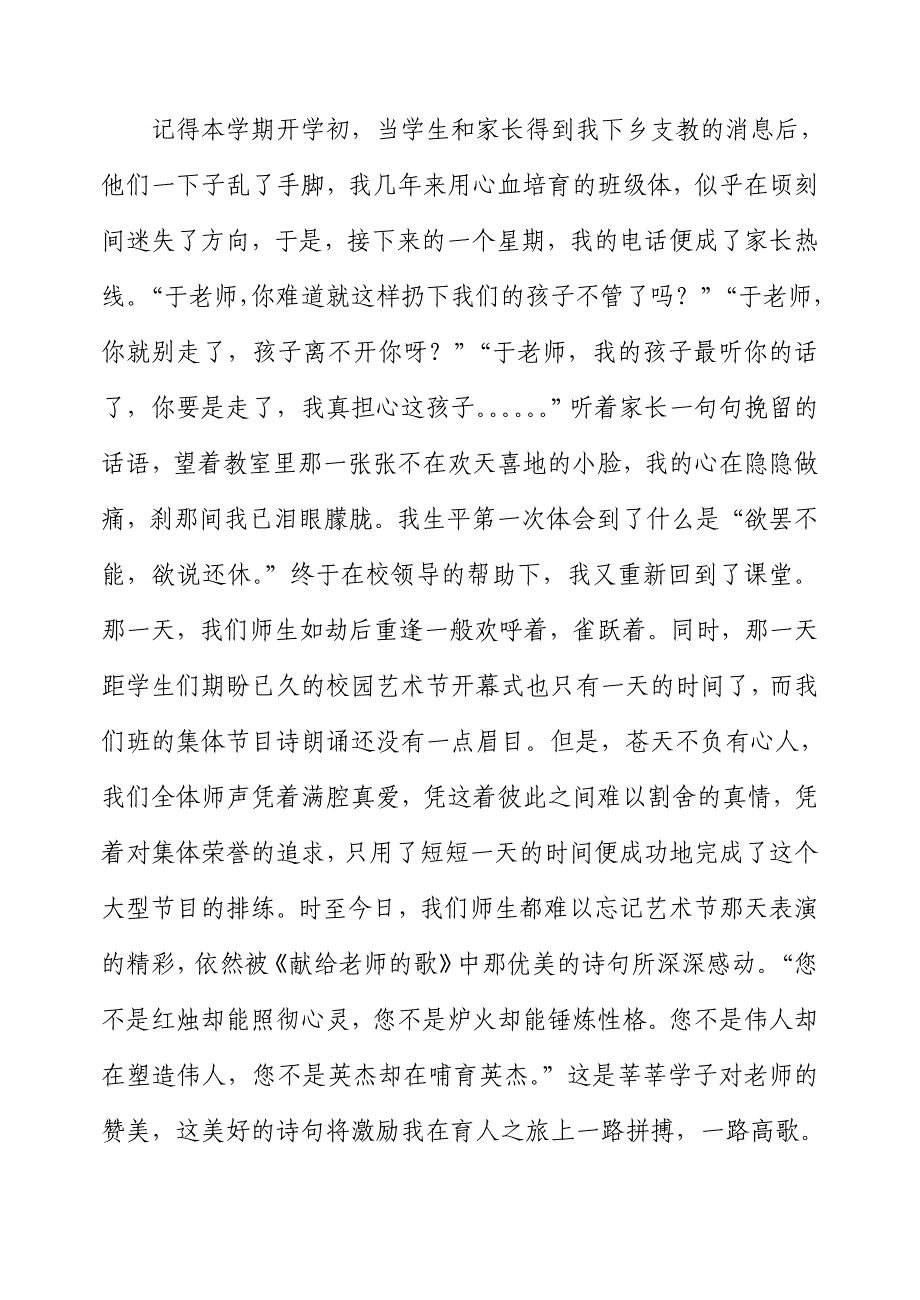 记得本学期开学初，当学生和家长得到我下乡支教的消息后，
他们一下子乱了手脚，我几年来用心血培育的班级体，似乎在顷刻
间迷失了方向，于是，接下来的一个星期，我的电话便成了家长热
线。“于老师，你难道就这样扔下我们的孩子不管了吗？”“于老师，
你就别走了，孩子离不开你呀？”“于老师，我的孩子最听你的话
了，你要是走了，我真担心这孩子。。。。。。”听着家长一句句挽留的
话语，望着教室里那一张张不在欢天喜地的小脸，我的心在隐隐做
痛，刹那间我已泪眼朦胧。我生平第一次体会到了什么是“欲罢不
能，欲说还休。”终于在校领导的帮助下，我又重新回到了课堂。
那一天，我们师生如劫后重逢一般欢呼着，雀跃着。同时，那一天
距学生们期盼已久的校园艺术节开幕式也只有一天的时间了，而我
们班的集体节目诗朗诵还没有一点眉目。但是，苍天不负有心人，
我们全体师声凭着满腔真爱，凭这着彼此之间难以割舍的真情，凭
着对集体荣誉的追求，只用了短短一天的时间便成功地完成了这个
大型节目的排练。时至今日，我们师生都难以忘记艺术节那天表演
的精彩，依然被《献给老师的歌》中那优美的诗句所深深感动。“您
不是红烛却能照彻心灵，您不是炉火却能锤炼性格。您不是伟人却
在塑造伟人，您不是英杰却在哺育英杰。”这是莘莘学子对老师的
赞美，这美好的诗句将激励我在育人之旅上一路拼搏，一路高歌。